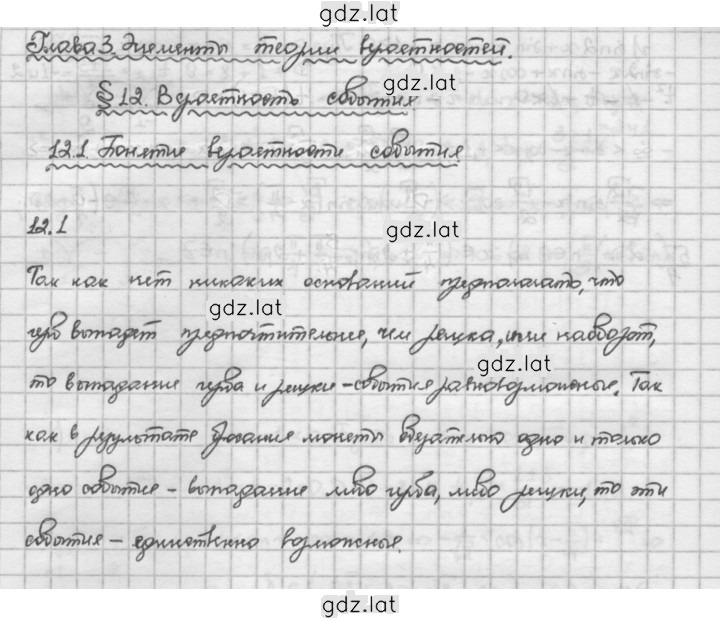 gdz.lat
Глава 3. Элементы теории вероятностей.
gdz.lat
§ 12. Вероятность события
12.1. Понятие вероятности события
12.1
gdz.lat
Так как нет никаких оснований предполагать, что
gdz.lat
герб выпадет предпочтительнее, чем решка, или наоборот,
gdz.lat
то выпадание герба и решки – события равновозможные. Так
как в результате бросания монеты обязательно одно и только
gdz.lat
одно событие – выпадание либо герба, либо решки, то эти
события – единственно возможные.
gdz.lat